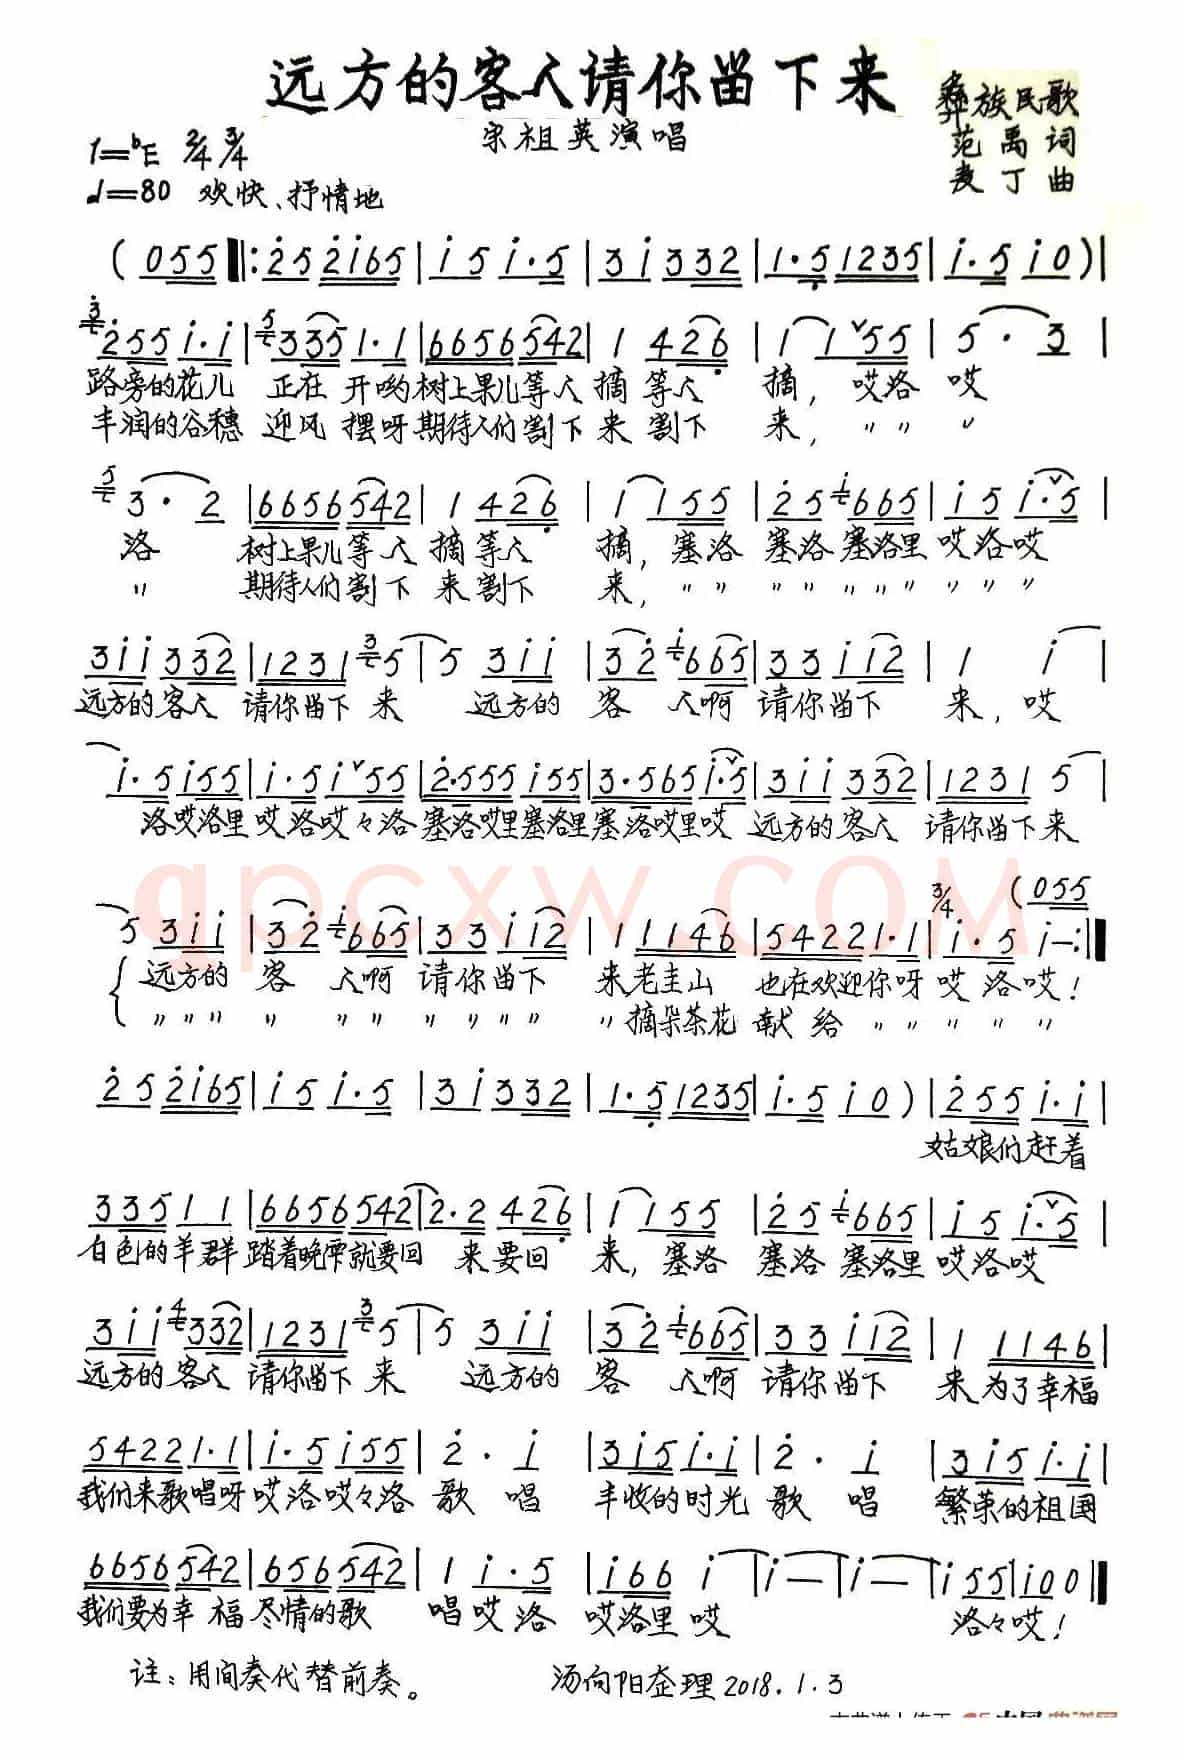 远方的客人请你留下来
彝族民歌
宋祖英演唱
范禹词
麦丁曲
1=bE 2/4 3/4
♩=80 欢快、抒情地
(055‖:2525i65|i5i·5|3i3332|1·51235|i·5i0)|
3255i·i|5335 1·1|6656542|1 426|1 1∨55|5·3|
路旁的花儿 正在 开哟树上果儿等人 摘 等人 摘, 哎洛 哎
丰润的谷穗 迎风 摆呀期待人们割下 来 割下 来, 〃〃 〃
5 3·2|6656542|1 426|1 155|25i665|i5i·∨5|
洛 树上果儿等人 摘等人 摘, 塞洛 塞洛 塞洛里 哎洛哎
〃 期待人们割下 来割下 来, 〃〃 〃〃 〃〃〃 〃〃〃
3ii332|123135|5 3ii|32i665|33ii2|1 i|
远方的客人 请你留下 来 远方的 客 人啊 请你留下 来, 哎
i·5i55|i·5i∨55|2·555i55|3·565i·∨5|3ii332|12315|
洛哎洛里哎洛哎々洛塞洛哎里塞洛里塞洛哎里哎 远方的客人 请你留下来
qpcxw.COM
3/4 (055
5 3ii|32i665|33ii2|111146|54221·1|i·5i—:‖
远方的 客 人啊 请你留下 来老圭山 也在欢迎你呀 哎 洛哎!
〃〃〃 〃 〃〃 〃〃〃〃 〃摘朵茶花 献 给 〃〃 〃 〃 〃
252i65|i5i·5|3i3332|1·51235|i·5i0)|255i·i|
姑娘们赶着
33511|6656542|2·2426|1 155|25i665|i5i·∨5|
白色的羊群踏着晚霞就要回 来要回 来, 塞洛 塞洛 塞洛里 哎洛哎
3ii4332|123135|5 3ii|32i665|33ii2|11146|
远方的客人 请你留下 来 远方的 客 人啊 请你留下 来为了幸福
54221·1|i·5i55|2·i|3i5i·i|2·i|3i5i·i|
我们来歌唱呀哎洛哎々洛 歌 唱 丰收的时光 歌 唱 繁荣的祖国
6656542|656542|1i·5|i66i|i—|i—|i55|i00‖
我们要为幸福尽情的歌 唱哎洛 哎洛里哎 洛々哎!
注:用间奏代替前奏。 汤向阳整理2018.1.3